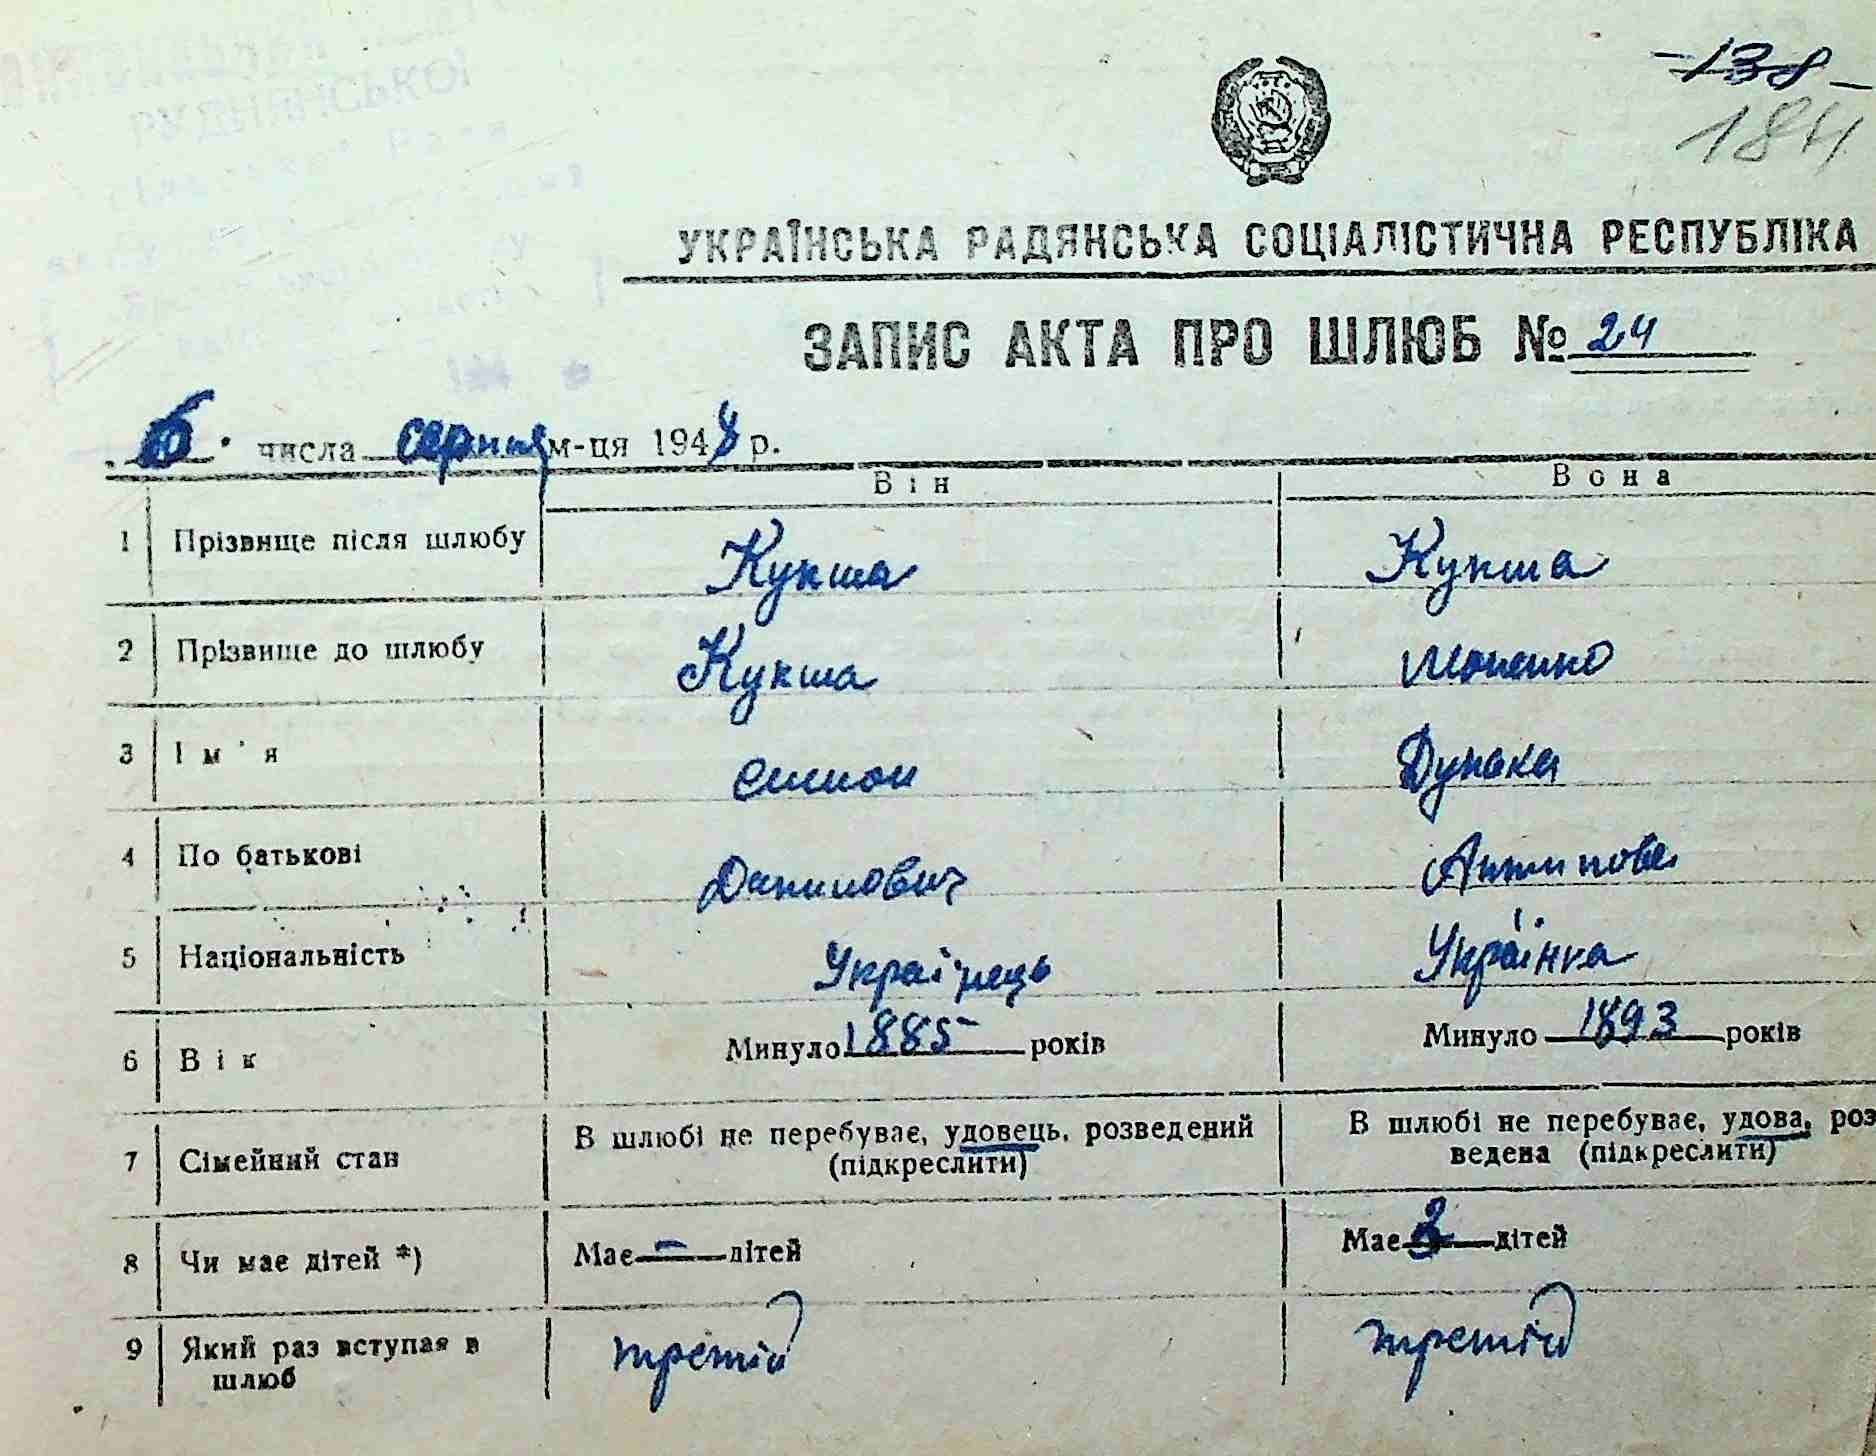 -138-
184
РУДНЯНСЬКОЇ
УКРАЇНСЬКА РАДЯНСЬКА СОЦІАЛІСТИЧНА РЕСПУБЛІКА
ЗАПИС АКТА ПРО ШЛЮБ № 24
6. числа серпня м-ця 1948 р.
Він Вона
1 Прізвище після шлюбу Кукша Кукша
2 Прізвище до шлюбу Кукша
3 Ім'я Симон
4 По батькові Данилович Антипова
5 Національність Українець Українка
6 Вік Минуло 1885 років Минуло 1893 років
7 Сімейний стан В шлюбі не перебуває, удовець, розведений В шлюбі не перебуває, удова, роз
(підкреслити) ведена (підкреслити)
8 Чи має дітей *) Має - дітей Має 3 дітей
9 Який раз вступає в третій третій
шлюб